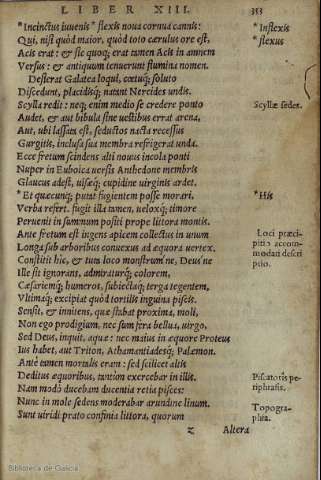 LIBER XIII. 353
*Incinctus iuuenis *flexis noua cornua cannis: *Inflexis
Qui, nisi quòd maior, quòd toto cærulus ore est, *flexus
Acis erat: & sic quoq; erat tamen Acis in amnem
Versus: & antiquum tenuerunt flumina nomen.
Desierat Galatea loqui, cœtuq; soluto
Discedunt, placidisq; natant Nereides undis.
Scylla redit: neq; enim medio se credere ponto Scyllæ sedes.
Audet, & aut bibula sine uestibus errat arena,
Aut, ubi lassata est, seductos nacta recessus
Gurgitis, inclusa sua membra refrigerat unda.
Ecce fretum scindens alti nouus incola ponti
Nuper in Euboica uersis Anthedone membris
Glaucus adest, uisæq; cupidine uirginis ardet.
*Et quæcunq; putat fugientem posse morari, *His
Verba refert. fugit illa tamen, ueloxq; timore
Peruenit in summum positi prope littora montis.
Ante fretum est ingens apicem collectus in unum Loci præci-
Longa sub arboribus conuexus ad æquora uertex. pitis accom-
Constitit hic, & tuta loco monstrum ne, Deus ne modati descri
Ille sit ignorans, admiraturq; colorem, ptio.
Cæsariemq; humeros, subiectaq; terga tegentem,
Vltimaq; excipiat quòd tortilis inguina piscis.
Sensit, & innitens, quæ stabat proxima, moli,
Non ego prodigium, nec sum fera bellua, uirgo,
Sed Deus, inquit, aquæ: nec maius in æquore Proteus
Ius habet, aut Triton, Athamantiadesq; Palæmon.
Antè tamen mortalis eram: sed scilicet altis
Deditus æquoribus, tantùm exercebar in illis. Piscatoris pe-
Nam modò ducebam ducentia retia pisces: riphrasis.
Nunc in mole sedens moderabar arundine linum.
Sunt uiridi prato confinia littora, quorum Topogra-
phia.
z Altera
Biblioteca de Galicia